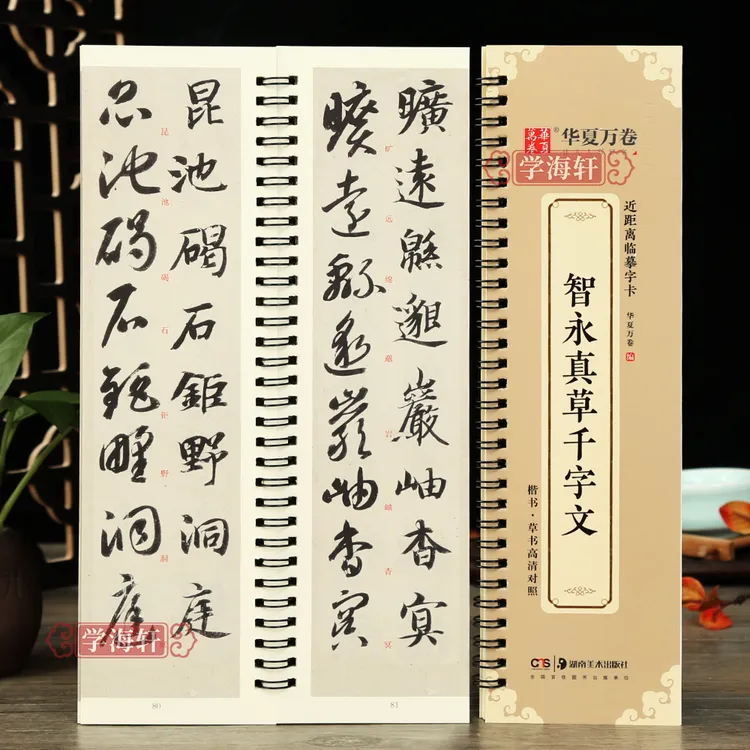 昆池碣石鉅野洞庭
昆池碣石钜野洞
昆池碣石鉅野洞庭
学海轩
80
曠遠緜邈巖岫杳冥
旷远绵邈岩岫杳冥
曠遠緜邈巖岫杳冥
81
華夏萬卷
华夏万卷
学海轩
近距离临摹字卡
华夏万卷 编
智永真草千字文
楷书·草书高清对照
CTS 湖南美术出版社
全国百佳图书出版单位